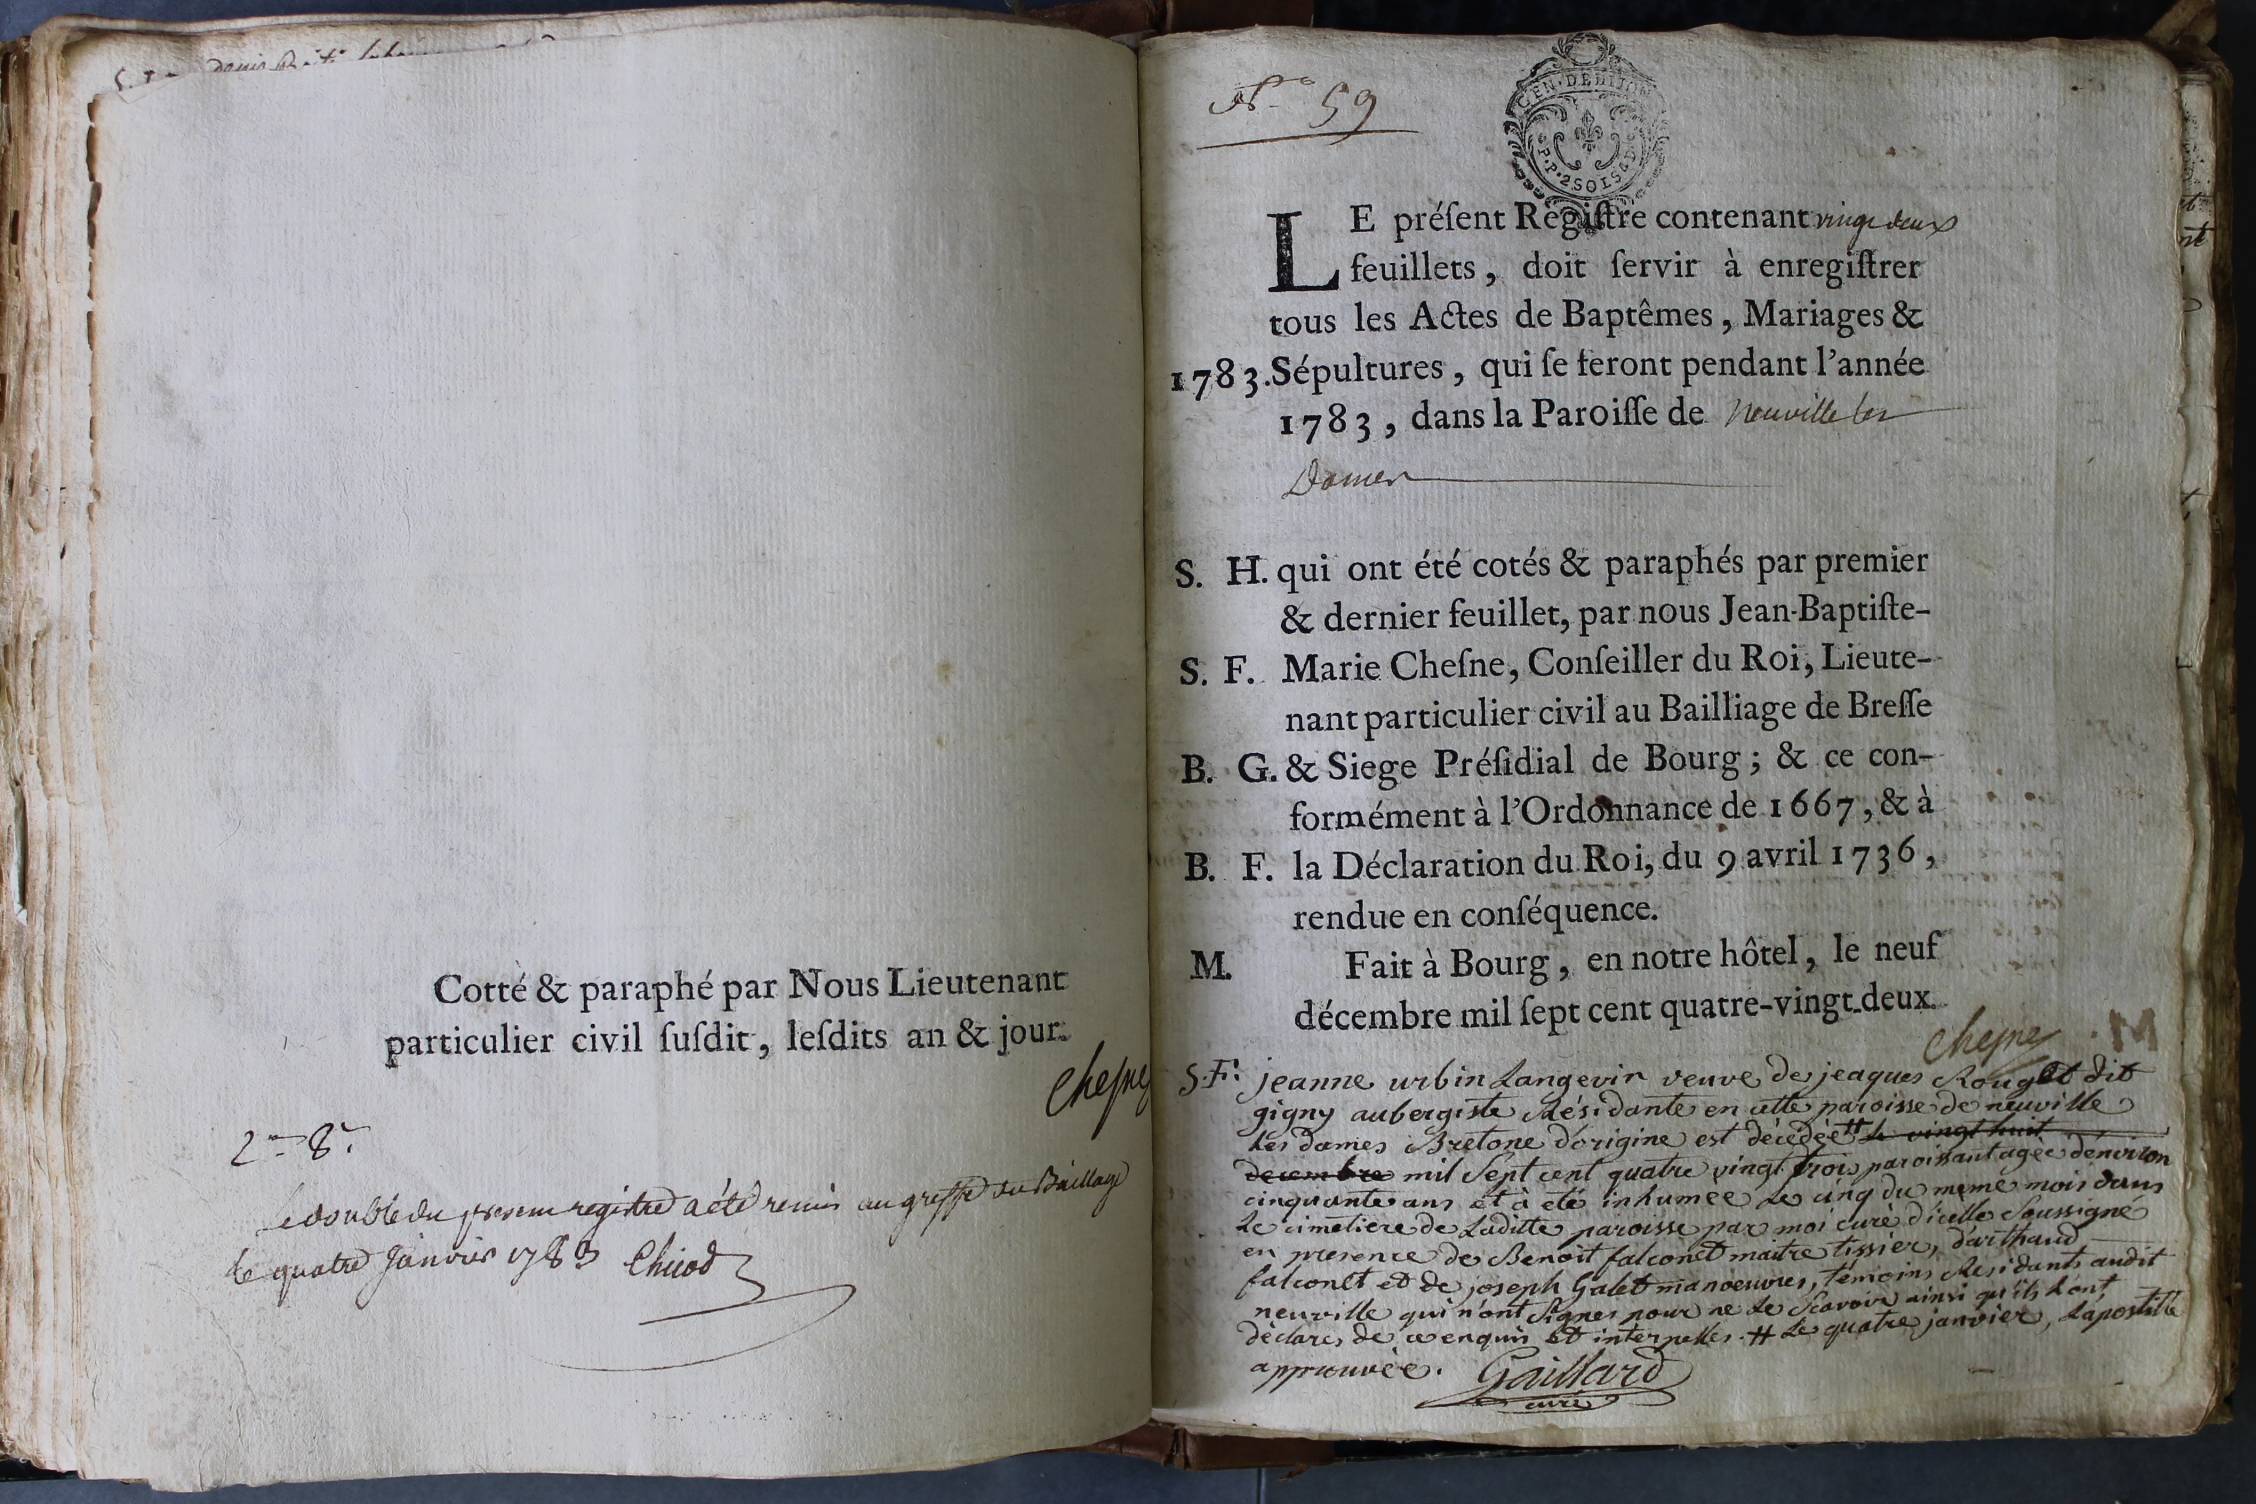 Cotté & paraphé par Nous Lieutenant
particulier civil ſuſdit, leſdits an & jour.
Cheſne
2me 8r
Le double du present registre a été remis au greffe du Bailliage
le quatre Janvier 1783 Chicod
N° 59
GEN. DE DIJON
P.P. 2 SOLS 6 D
LE préſent Régiſtre contenant vingt deux
feuillets, doit ſervir à enregiſtrer
tous les Actes de Baptêmes, Mariages &
1783. Sépultures, qui ſe feront pendant l'année
1783, dans la Paroiſſe de Neuville les
Dames
S. H. qui ont été cotés & paraphés par premier
& dernier feuillet, par nous Jean-Baptiſte-
S. F. Marie Cheſne, Conſeiller du Roi, Lieute-
nant particulier civil au Bailliage de Breſſe
B. G. & Siege Préſidial de Bourg; & ce con-
formément à l'Ordonnance de 1667, & à
B. F. la Déclaration du Roi, du 9 avril 1736,
rendue en conſéquence.
M. Fait à Bourg, en notre hôtel, le neuf
décembre mil ſept cent quatre-vingt-deux.
Cheſne
S.F. jeanne urbin Langevin veuve de jeaques Rouget dit
gigny aubergiste Résidante en cette paroisse de neuville
les dames Bretone d'origine est décédée # le vingt huit
decembre mil Sept cent quatre vingt trois paroissant agée d'environ
cinquante ans et à eté inhumée Le cinq du meme mois dans
Le cimetiere de Laditte paroisse par moi curé d'icelle Soussigné
en presence de Benoit falconet maitre tissier, d'arthaud
falconet et de joseph Galet manoeuvres, témoins Residants audit
neuville qui n'ont Signes pour ne Le Scavoir ainsi qu'ils L'ont
déclarés de ce enquis et interpellés. # Le quatre janvier, L'apostille
approuvée. Gaillard
curé